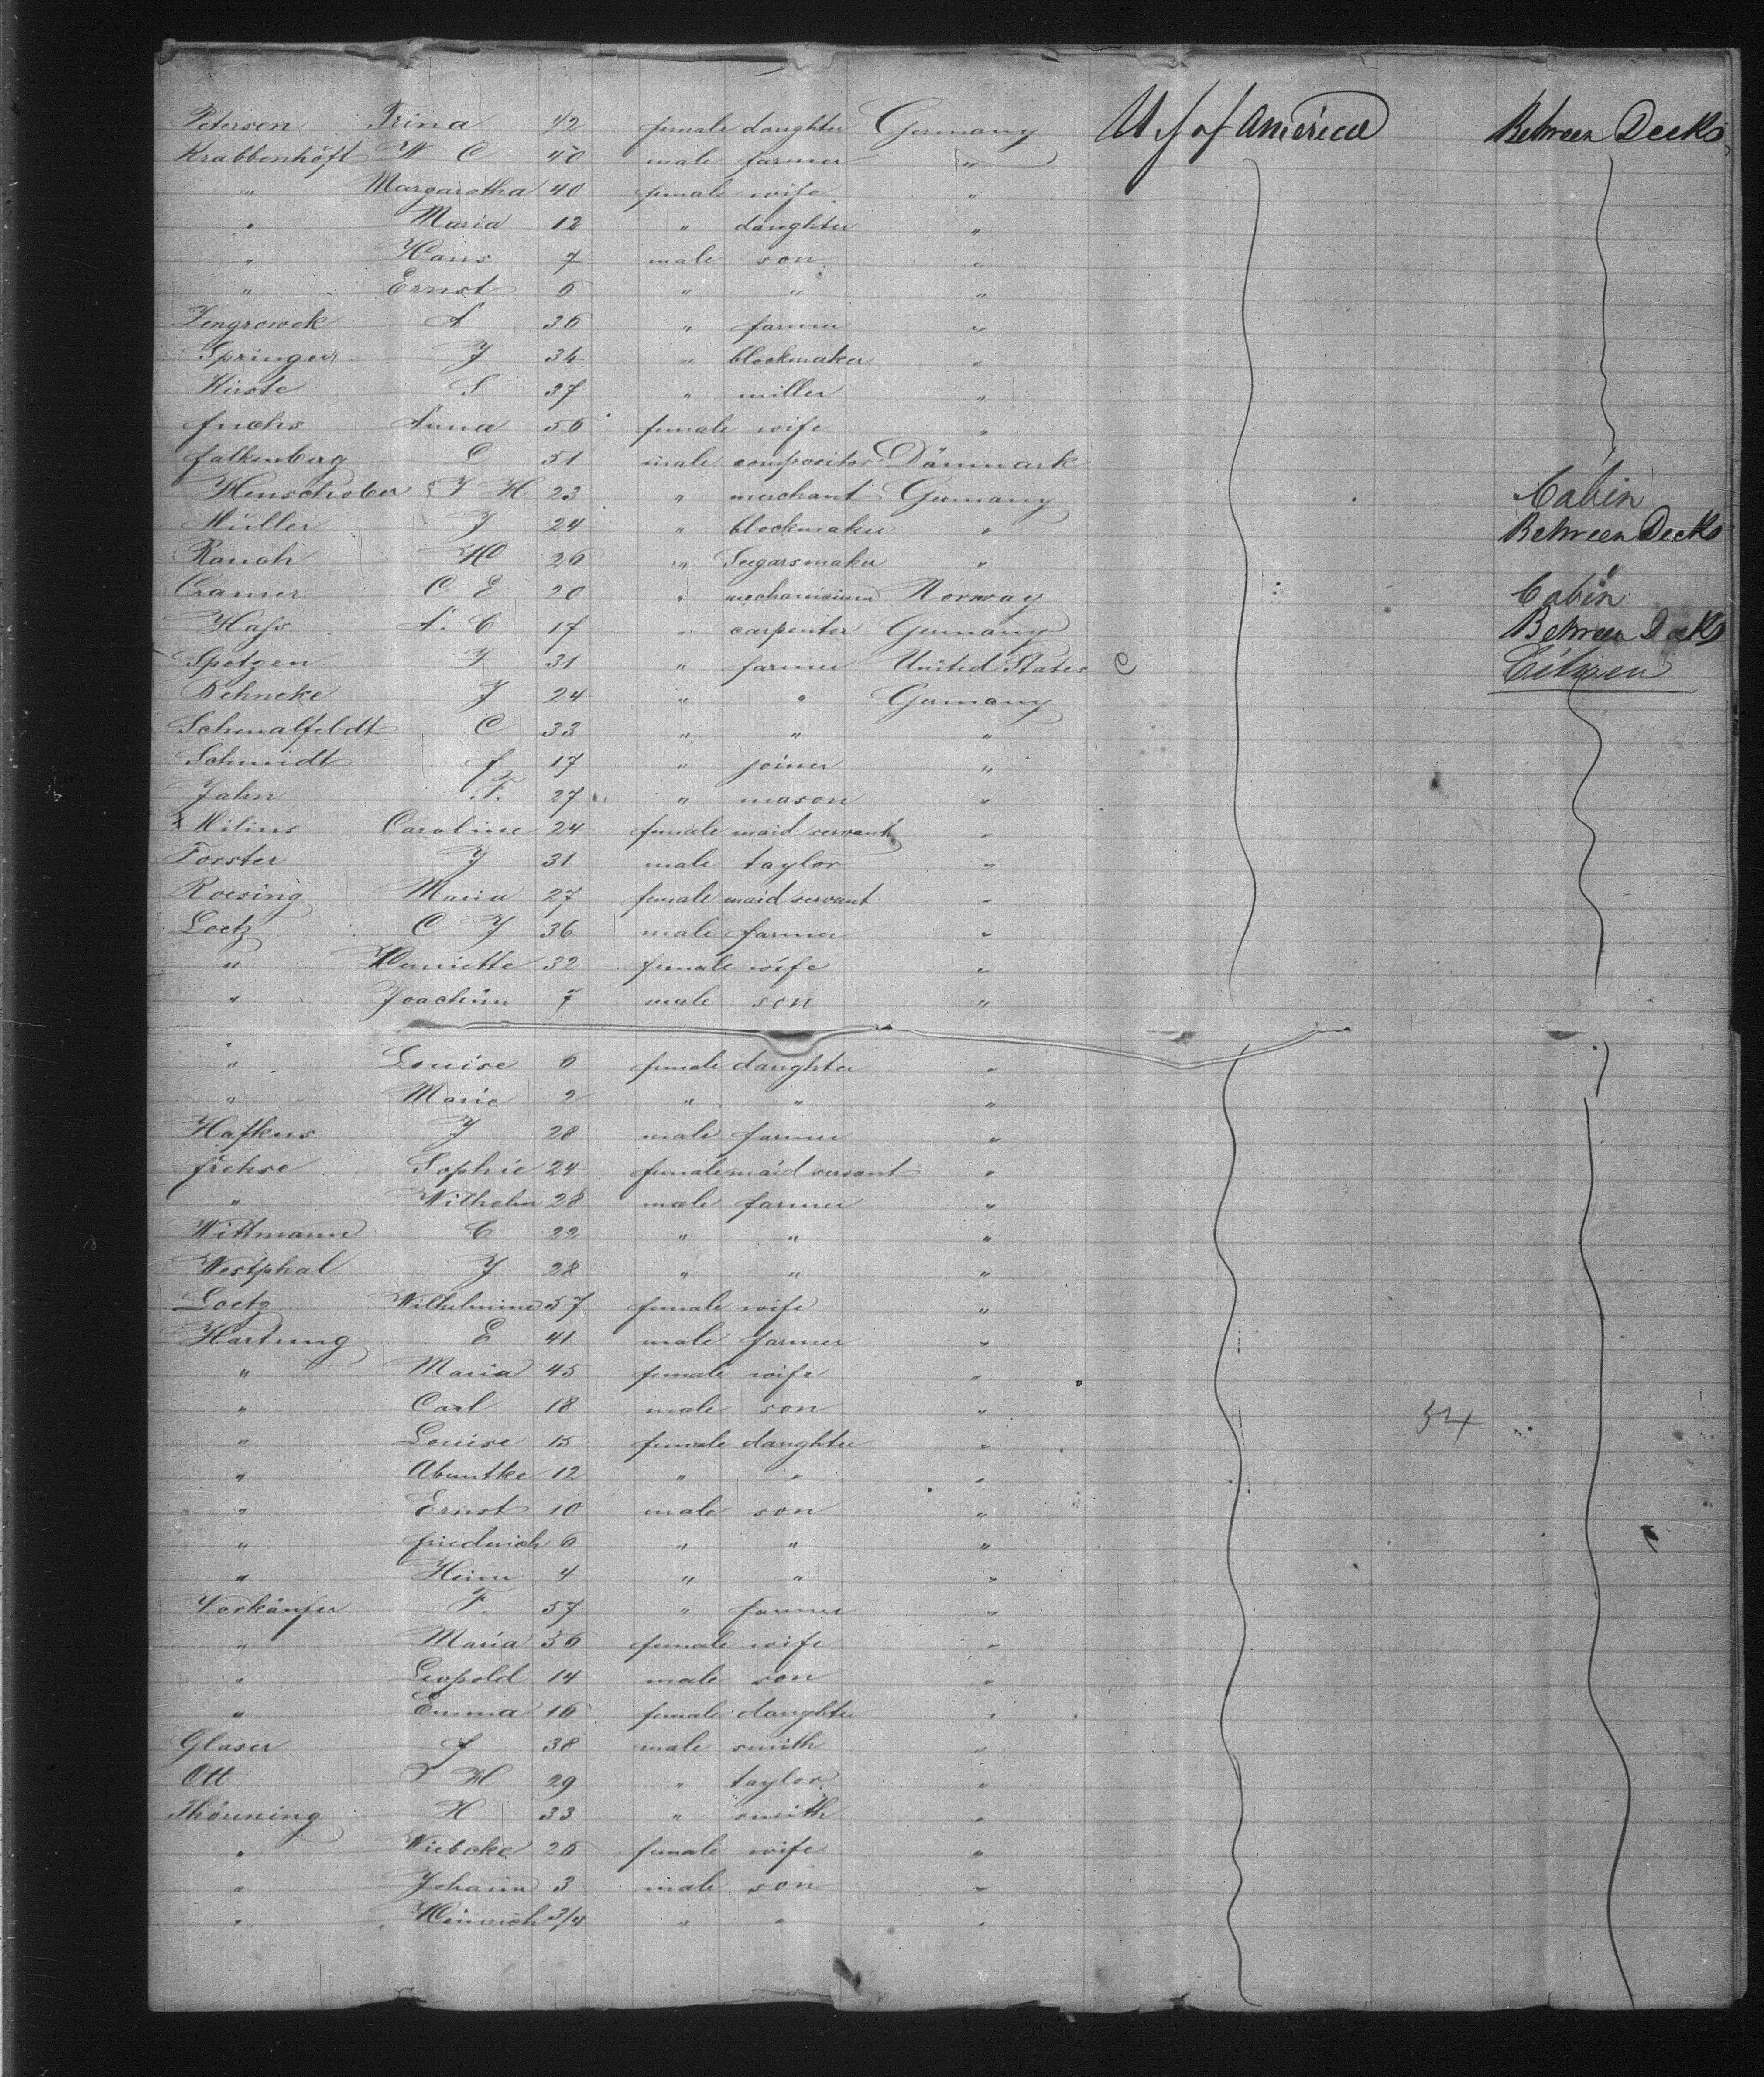 Petersen Trina 1/2 female daughter Germany U S of America Between Decks
Krabbenhöft W C 40 male farmer "
" Margaretha 40 female wife "
" Maria 12 " daughter "
" Hans 7 male son "
" Ernst 6 " " "
A 36 " farmer "
Springer J 34 " blockmaker "
Kirste S 37 " miller "
fuchs Anna 56 female wife "
falkenberg L 51 male compositor Dänmark
J H 23 " merchant Germany Cabin
Müller J 24 " blockmaker " Between Decks
Rauch H 26 " Segarsmaker "
Cramer C E 20 " Norway Cabin
Hass A. C 17 " carpenter Germany Between Decks
Spetzen J 31 " farmer United States C Citizen
Rehncke J 24 " " Germany
Schmalfeldt C 33 " " "
Schmidt f 17 " joiner "
Jahn F. 27 " mason "
x Milius Caroline 24 female maid servant "
Forster J 31 male taylor "
Roesing Maria 27 female maid servant "
Loetz C J 36 male farmer "
" Henriette 32 female wife "
" Joachim 7 male son "
" Louise 6 female daughter "
" Marie 2 " " "
Hafkus J 28 male farmer "
frehse Sophie 24 female maid servant "
" Wilhelm 28 male farmer "
Wittmann C 22 " " "
Westphal J 28 " " "
Loetz Wilhelmine 57 female wife "
Hartung E 41 male farmer "
" Maria 45 female wife "
" Carl 18 male son "
" Louise 15 female daughter " 54
" 12 " " "
" Ernst 10 male son "
" friederich 6 " " "
" Heinr 4 " " "
F. 57 " farmer "
" Maria 56 female wife "
" Leopold 14 male son "
" Emma 16 female daughter "
Glaser f 38 male smith "
Ott H 29 " taylor "
Thönning H 33 " smith "
" Wiebcke 26 female wife "
" Johann 3 male son "
" Heinrich 3/4 " " "